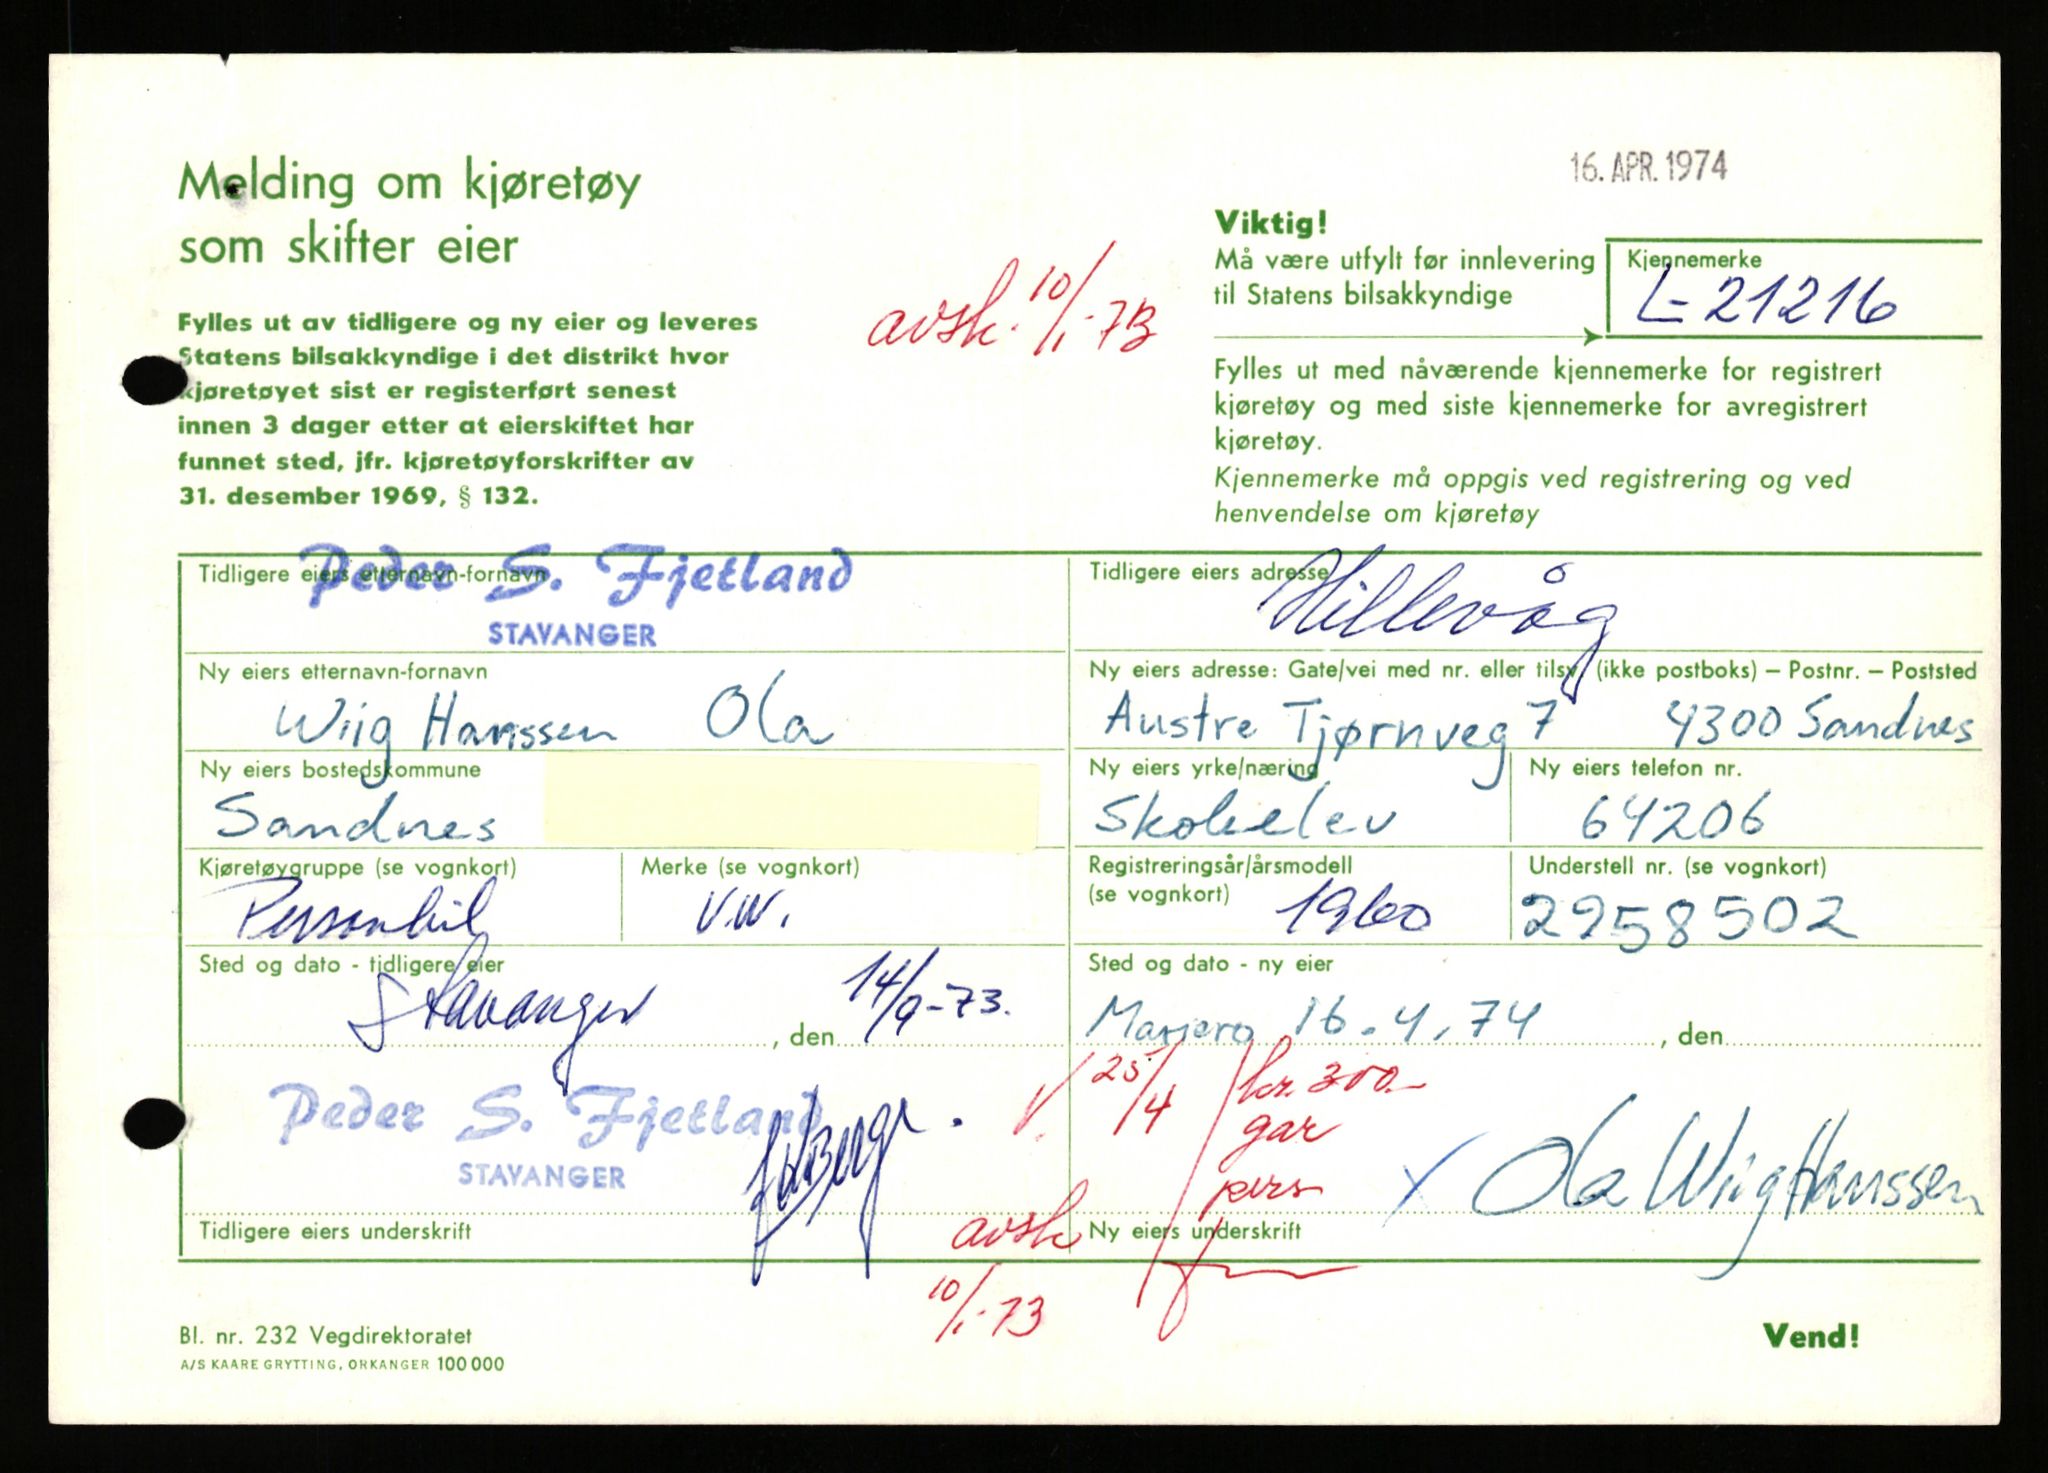 16. APR. 1974
Melding om kjøretøy
som skifter eier
Fylles ut av tidligere og ny eier og leveres
Statens bilsakkyndige i det distrikt hvor
kjøretøyet sist er registerført senest
innen 3 dager etter at eierskiftet har
funnet sted, jfr. kjøretøyforskrifter av
31. desember 1969, § 132.
avsk. 10/1-73
Viktig!
Må være utfylt før innlevering
til Statens bilsakkyndige
Kjennemerke
L-21216
Fylles ut med nåværende kjennemerke for registrert
kjøretøy og med siste kjennemerke for avregistrert
kjøretøy.
Kjennemerke må oppgis ved registrering og ved
henvendelse om kjøretøy
Tidligere eiers etternavn-fornavn
Peder S. Fjetland
STAVANGER
Tidligere eiers adresse
Hillevåg
Ny eiers etternavn-fornavn
Wiig Hanssen Ola
Ny eiers adresse: Gate/vei med nr. eller tilsv. (ikke postboks) – Postnr. – Poststed
Austre Tjørnveg 7 4300 Sandnes
Ny eiers bostedskommune
Sandnes
Ny eiers yrke/næring
Skoleelev
Ny eiers telefon nr.
64206
Kjøretøygruppe (se vognkort)
Personbil
Merke (se vognkort)
V.W.
Registreringsår/årsmodell
(se vognkort)
1960
Understell nr. (se vognkort)
2958502
Sted og dato - tidligere eier
Stavanger, den 14/9-73.
Sted og dato - ny eier
16.4.74, den
Peder S. Fjetland
STAVANGER
V. 25/4
kr. 300.-
gar
pers
Ola Wiig Hanssen
Tidligere eiers underskrift
avsk
10/1-73
Ny eiers underskrift
Bl. nr. 232 Vegdirektoratet
A/S KAARE GRYTTING, ORKANGER 100 000
Vend!